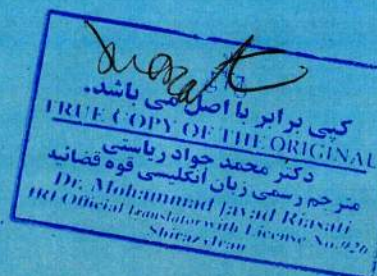 کپی برابر با اصل می باشد.
TRUE COPY OF THE ORIGINAL
دکتر محمد جواد ریاستی
مترجم رسمی زبان انگلیسی قوه قضائیه
Dr. Mohammad Javad Riasati
IRI Official Translator with License No.920
Shiraz, Iran